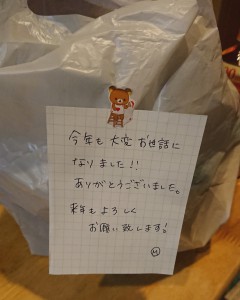 今年も大変お世話に
なりました!!
ありがとうございました。
来年もよろしく
お願い致します!
M